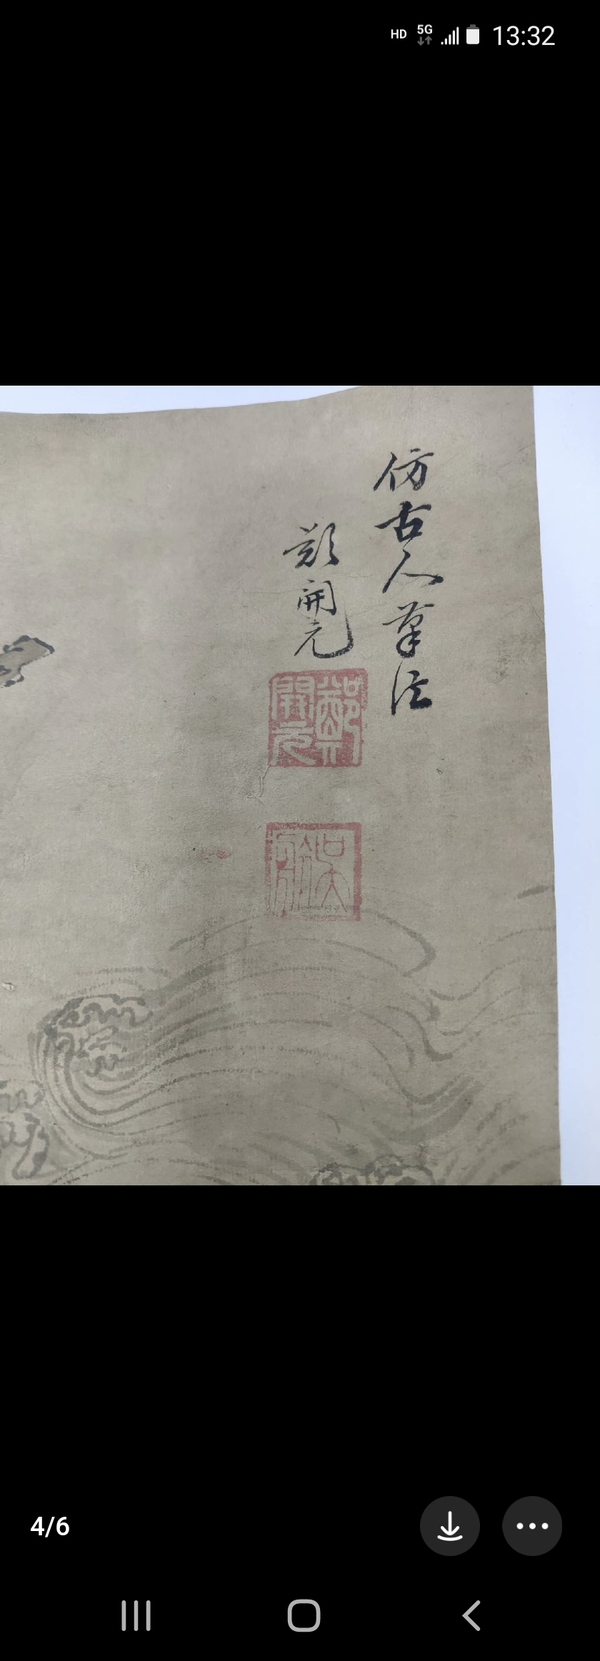 HD 5G 13:32
仿古人筆法
鄭開元
鄭開元
4/6